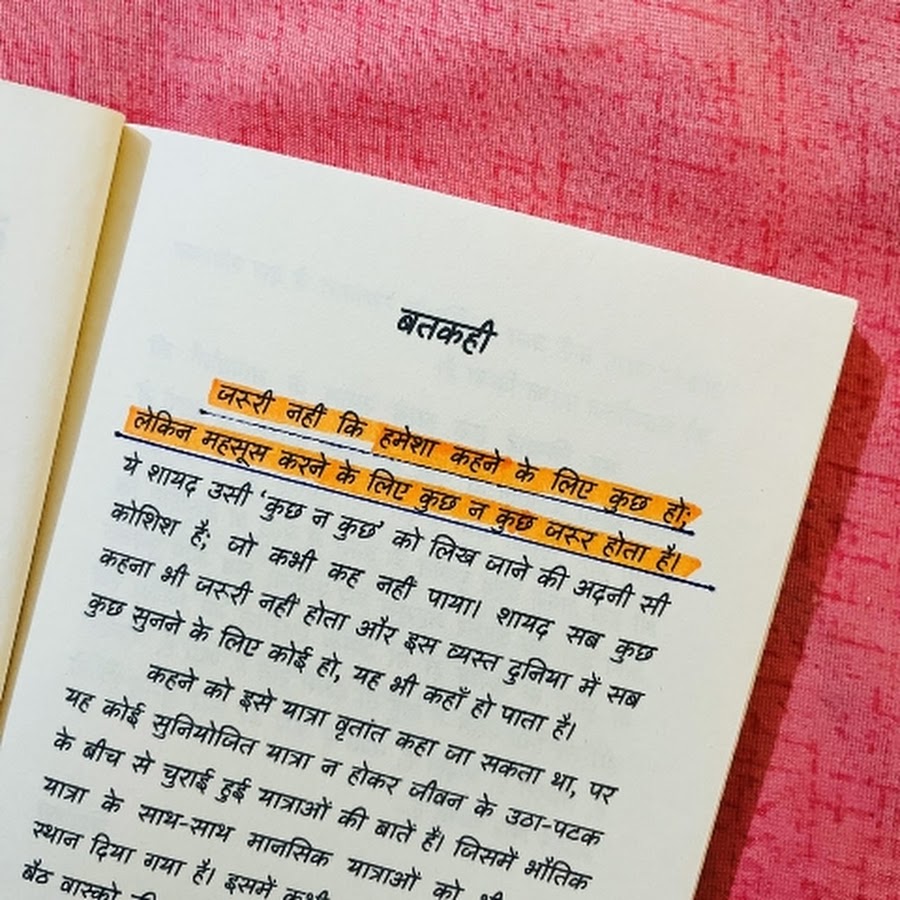 बतकही
जरूरी नहीं कि हमेशा कहने के लिए कुछ हो;
लेकिन महसूस करने के लिए कुछ न कुछ जरूर होता है।
ये शायद उसी ‘कुछ न कुछ’ को लिख जाने की अदनी सी
कोशिश है; जो कभी कह नहीं पाया। शायद सब कुछ
कहना भी जरूरी नहीं होता और इस व्यस्त दुनिया में सब
कुछ सुनने के लिए कोई हो, यह भी कहाँ हो पाता है।
कहने को इसे यात्रा वृतांत कहा जा सकता था, पर
यह कोई सुनियोजित यात्रा न होकर जीवन के उठा-पटक
के बीच से चुराई हुई यात्राओं की बातें हैं। जिसमें भौतिक
यात्रा के साथ-साथ मानसिक यात्राओं को
स्थान दिया गया है। इसमें कभी
बैठ वास्को